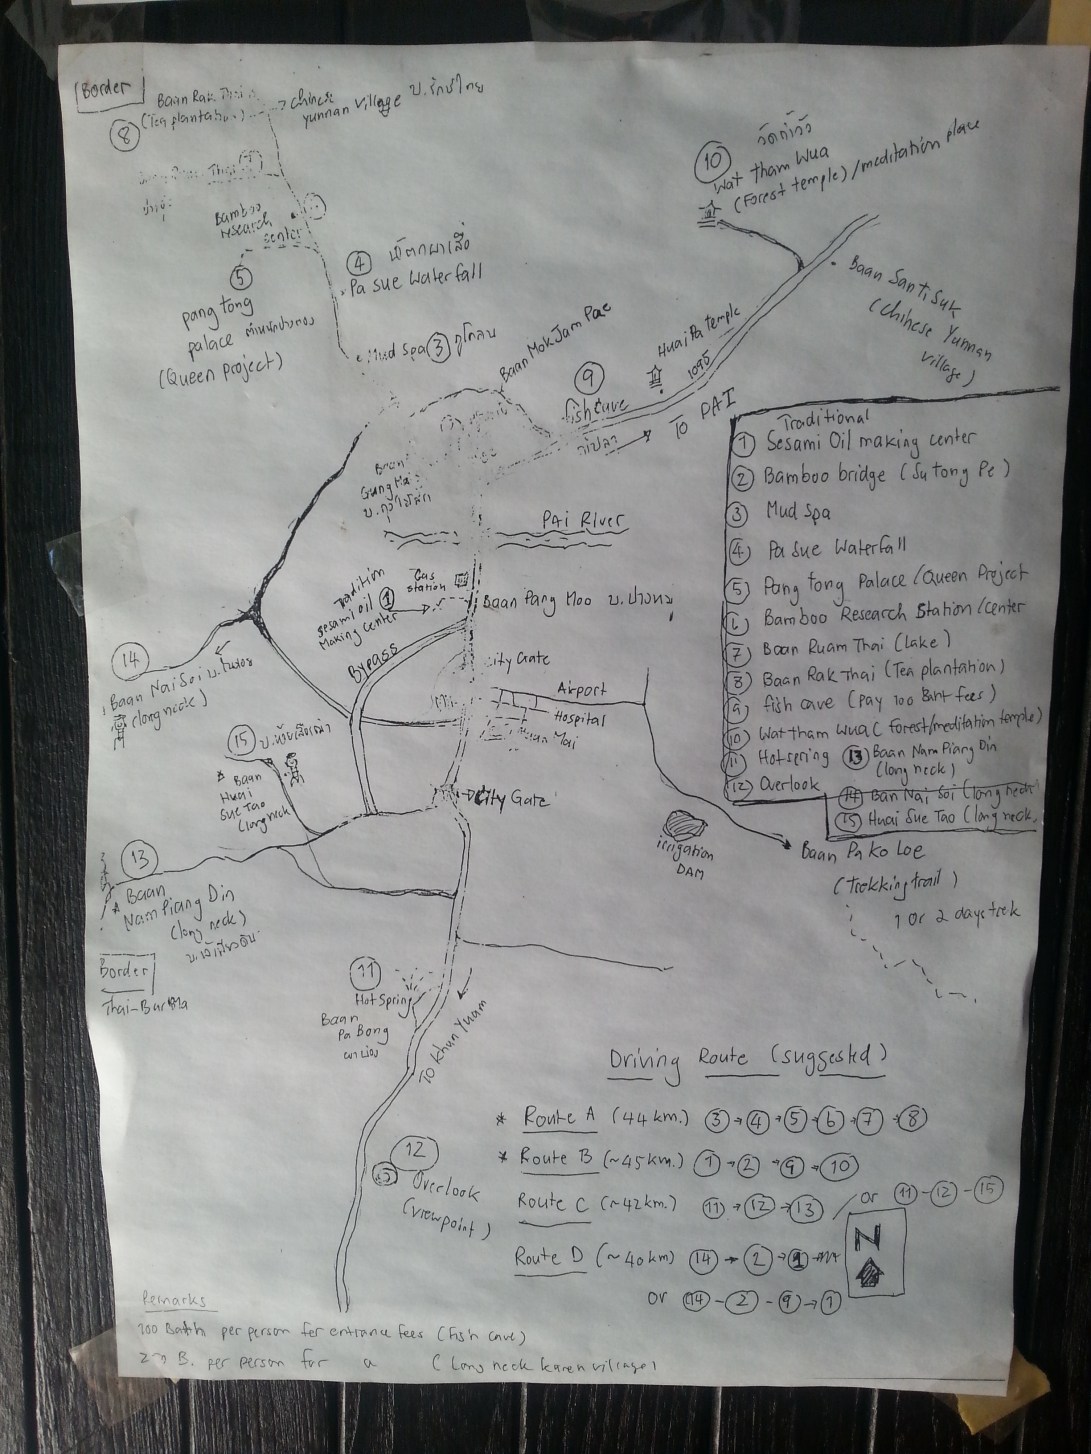 Border
Baan Rak Thai
(Tea plantation)
8
chinese
yunnan village บ.รักไทย
Thai
7
Bamboo
research
center
5
pang tong
palace
(Queen project)
4 น้ำตกผาเสื่อ
Pa Sue Waterfall
Mud Spa 3 ภูโคลน
Baan Mok Jam Pae
9
fish cave
ถ้ำปลา
Huai Pa temple
1095
To PAI
10 วัดถ้ำวัว
Wat tham Wua
(Forest temple)/meditation place
Baan Santi Suk
(chinese Yunnan
village)
PAi River
Gas
station
Tradition
Sesami oil 1
Making center
Baan Pang Moo บ.ปางหมู
Bypass
City Gate
Airport
Hospital
14
Baan Nai Soi บ.ในสอย
(long neck)
15 บ.ห้วยเสือเฒ่า
* Baan
Huai
Sue Tao
(long neck)
City Gate
13
* Baan
Nam Piang Din
(long neck)
Border
Thai-Burma
irrigation
DAM
Baan Pa Ko Loe
(Trekking trail)
1 or 2 days trek
11
Hot Spring
Baan
Pa Bong
ผาบ่อง
To Khun Yuam
12
Overlook
(viewpoint)
Traditional
1 Sesami Oil making center
2 Bamboo bridge (Su tong Pe)
3 Mud Spa
4 Pa Sue Waterfall
5 Pang tong Palace/Queen Project
6 Bamboo Research Station/center
7 Baan Ruam Thai (Lake)
8 Baan Rak Thai (Tea plantation)
9 fish cave (Pay 100 Baht fees)
10 Wat tham wua (forest/meditation temple)
11 Hot spring 13 Baan Nam Piang Din
(long neck)
12 Overlook 14 Ban Nai Soi (long neck)
15 Huai Sue Tao (long neck)
Driving Route (suggested)
* Route A (44 km.) 3 → 4 → 5 → 6 → 7 → 8
* Route B (~45km.) 1 → 2 → 9 → 10
Route C (~42km.) 11 → 12 → 13 / or 11 - 12 - 15
Route D (~40km) 14 → 2 → 1
or 14 - 2 - 9 → 1
N
Remarks
100 Bath per person for entrance fees (fish cave)
B. per person for a (Long neck karen village)